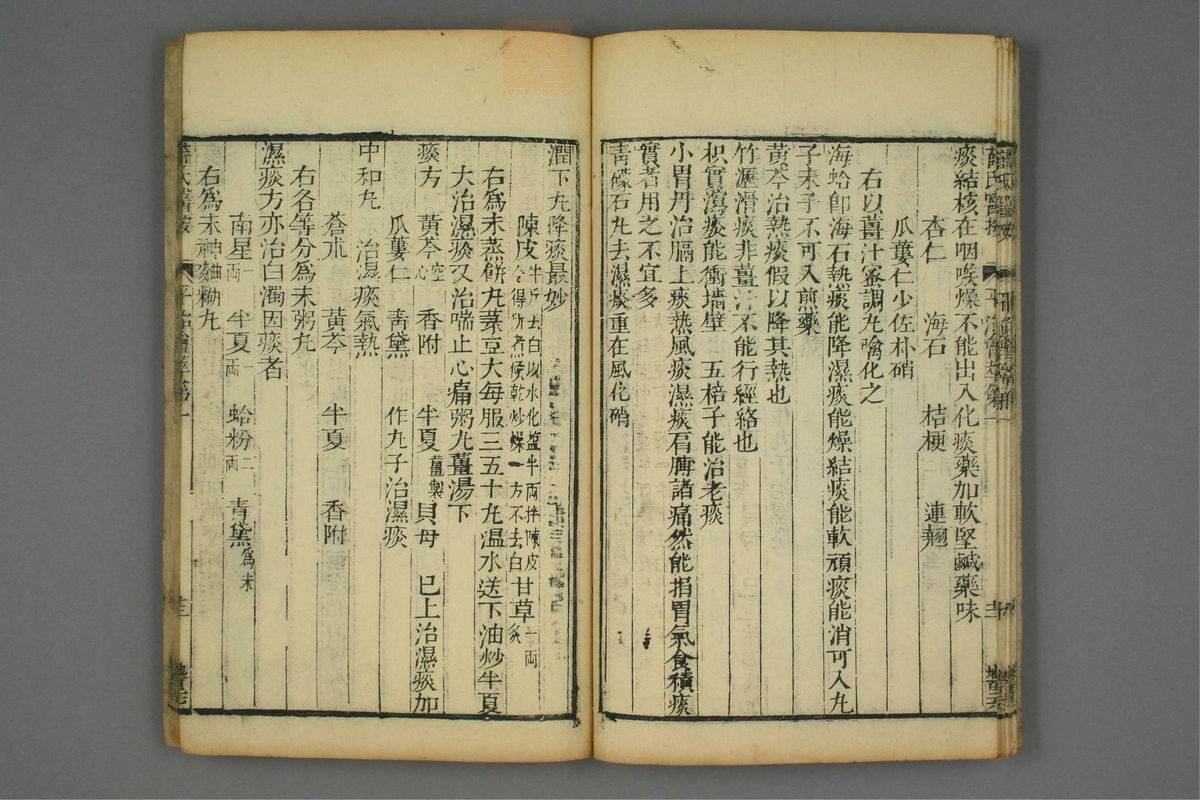 痰結核在咽喉燥不能出入化痰藥加軟堅鹹藥味
杏仁 海石 桔梗 連翹
瓜蔞仁少佐朴硝
右以薑汁蜜調丸噙化之
海蛤卽海石熱痰能降濕痰能燥結痰能軟頑痰能消可入丸
子末子不可入煎藥
黃芩治熱痰假以降其熱也
竹瀝滑痰非薑汁不能行經絡也
枳實瀉痰能衝墻壁 五棓子能治老痰
小胃丹治膈上痰熱風痰濕痰肩膊諸痛然能損胃氣食積痰
實者用之不宜多
青礞石丸去濕痰重在風化硝
潤下丸降痰最妙
陳皮半斤去白以水化塩半兩拌陳皮令得所煮候乾炒燥一方不去白 甘草一兩炙
右爲末蒸餅丸菉豆大每服三五十丸溫水送下油炒半夏
大治濕痰又治喘止心痛粥丸薑湯下
痰方 黃芩空心 香附 半夏薑製 貝母 已上治濕痰加
瓜蔞仁 靑黛 作丸子治濕痰
中和丸 治濕痰氣熱
蒼朮 黃芩 半夏 香附
右各等分爲末粥丸
濕痰方亦治白濁因痰者
南星一兩 半夏一兩 蛤粉二兩 青黛爲末
右爲末神麯糊丸